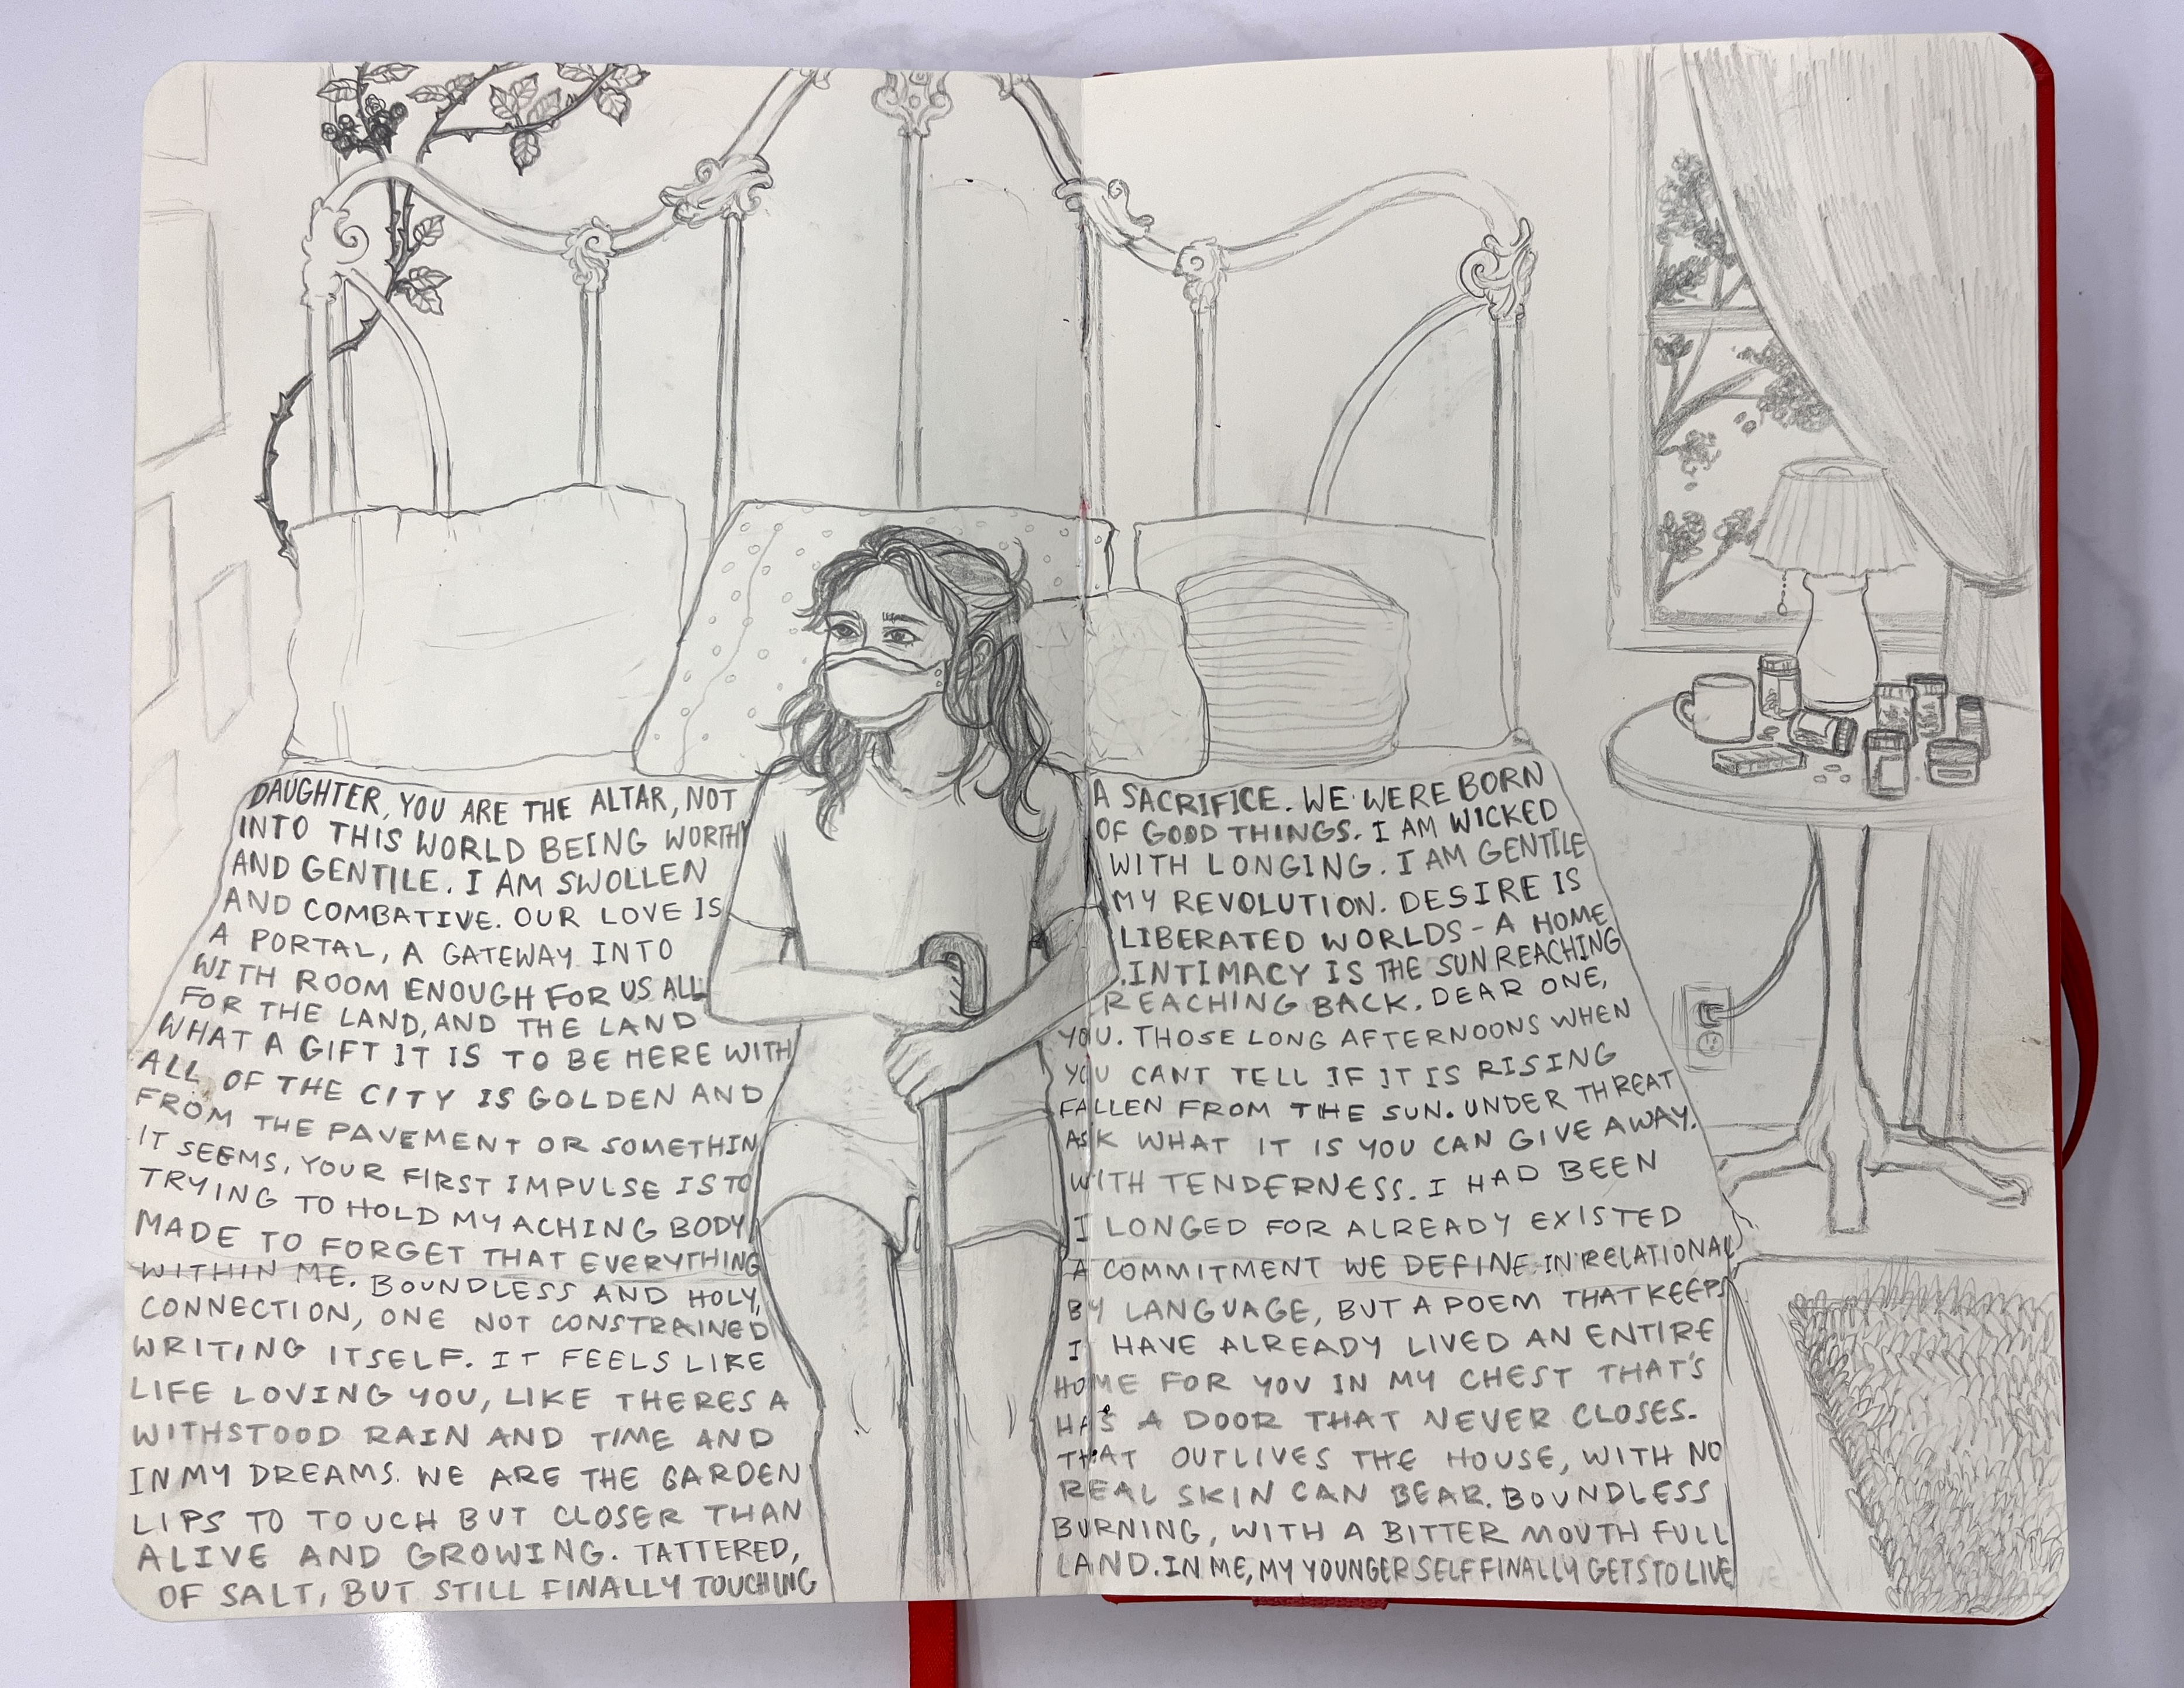 DAUGHTER, YOU ARE THE ALTAR, NOT A SACRIFICE. WE WERE BORN
INTO THIS WORLD BEING WORTHY OF GOOD THINGS. I AM WICKED
AND GENTILE. I AM SWOLLEN WITH LONGING. I AM GENTILE
AND COMBATIVE. OUR LOVE IS MY REVOLUTION. DESIRE IS
A PORTAL, A GATEWAY INTO LIBERATED WORLDS - A HOME
WITH ROOM ENOUGH FOR US ALL. INTIMACY IS THE SUN REACHING
FOR THE LAND, AND THE LAND REACHING BACK. DEAR ONE,
WHAT A GIFT IT IS TO BE HERE WITH YOU. THOSE LONG AFTERNOONS WHEN
ALL OF THE CITY IS GOLDEN AND YOU CANT TELL IF IT IS RISING
FROM THE PAVEMENT OR SOMETHIN FALLEN FROM THE SUN. UNDER THREAT
IT SEEMS, YOUR FIRST IMPULSE IS TO ASK WHAT IT IS YOU CAN GIVE AWAY.
TRYING TO HOLD MY ACHING BODY WITH TENDERNESS. I HAD BEEN
MADE TO FORGET THAT EVERYTHING I LONGED FOR ALREADY EXISTED
WITHIN ME. BOUNDLESS AND HOLY, A COMMITMENT WE DEFINE IN RELATIONAL
CONNECTION, ONE NOT CONSTRAINED BY LANGUAGE, BUT A POEM THAT KEEPS
WRITING ITSELF. IT FEELS LIKE I HAVE ALREADY LIVED AN ENTIRE
LIFE LOVING YOU, LIKE THERES A HOME FOR YOU IN MY CHEST THAT'S
WITHSTOOD RAIN AND TIME AND HAS A DOOR THAT NEVER CLOSES.
IN MY DREAMS. WE ARE THE GARDEN THAT OUTLIVES THE HOUSE, WITH NO
LIPS TO TOUCH BUT CLOSER THAN REAL SKIN CAN BEAR. BOUNDLESS
ALIVE AND GROWING. TATTERED, BURNING, WITH A BITTER MOUTH FULL
OF SALT, BUT STILL FINALLY TOUCHING LAND. IN ME, MY YOUNGER SELF FINALLY GETS TO LIVE